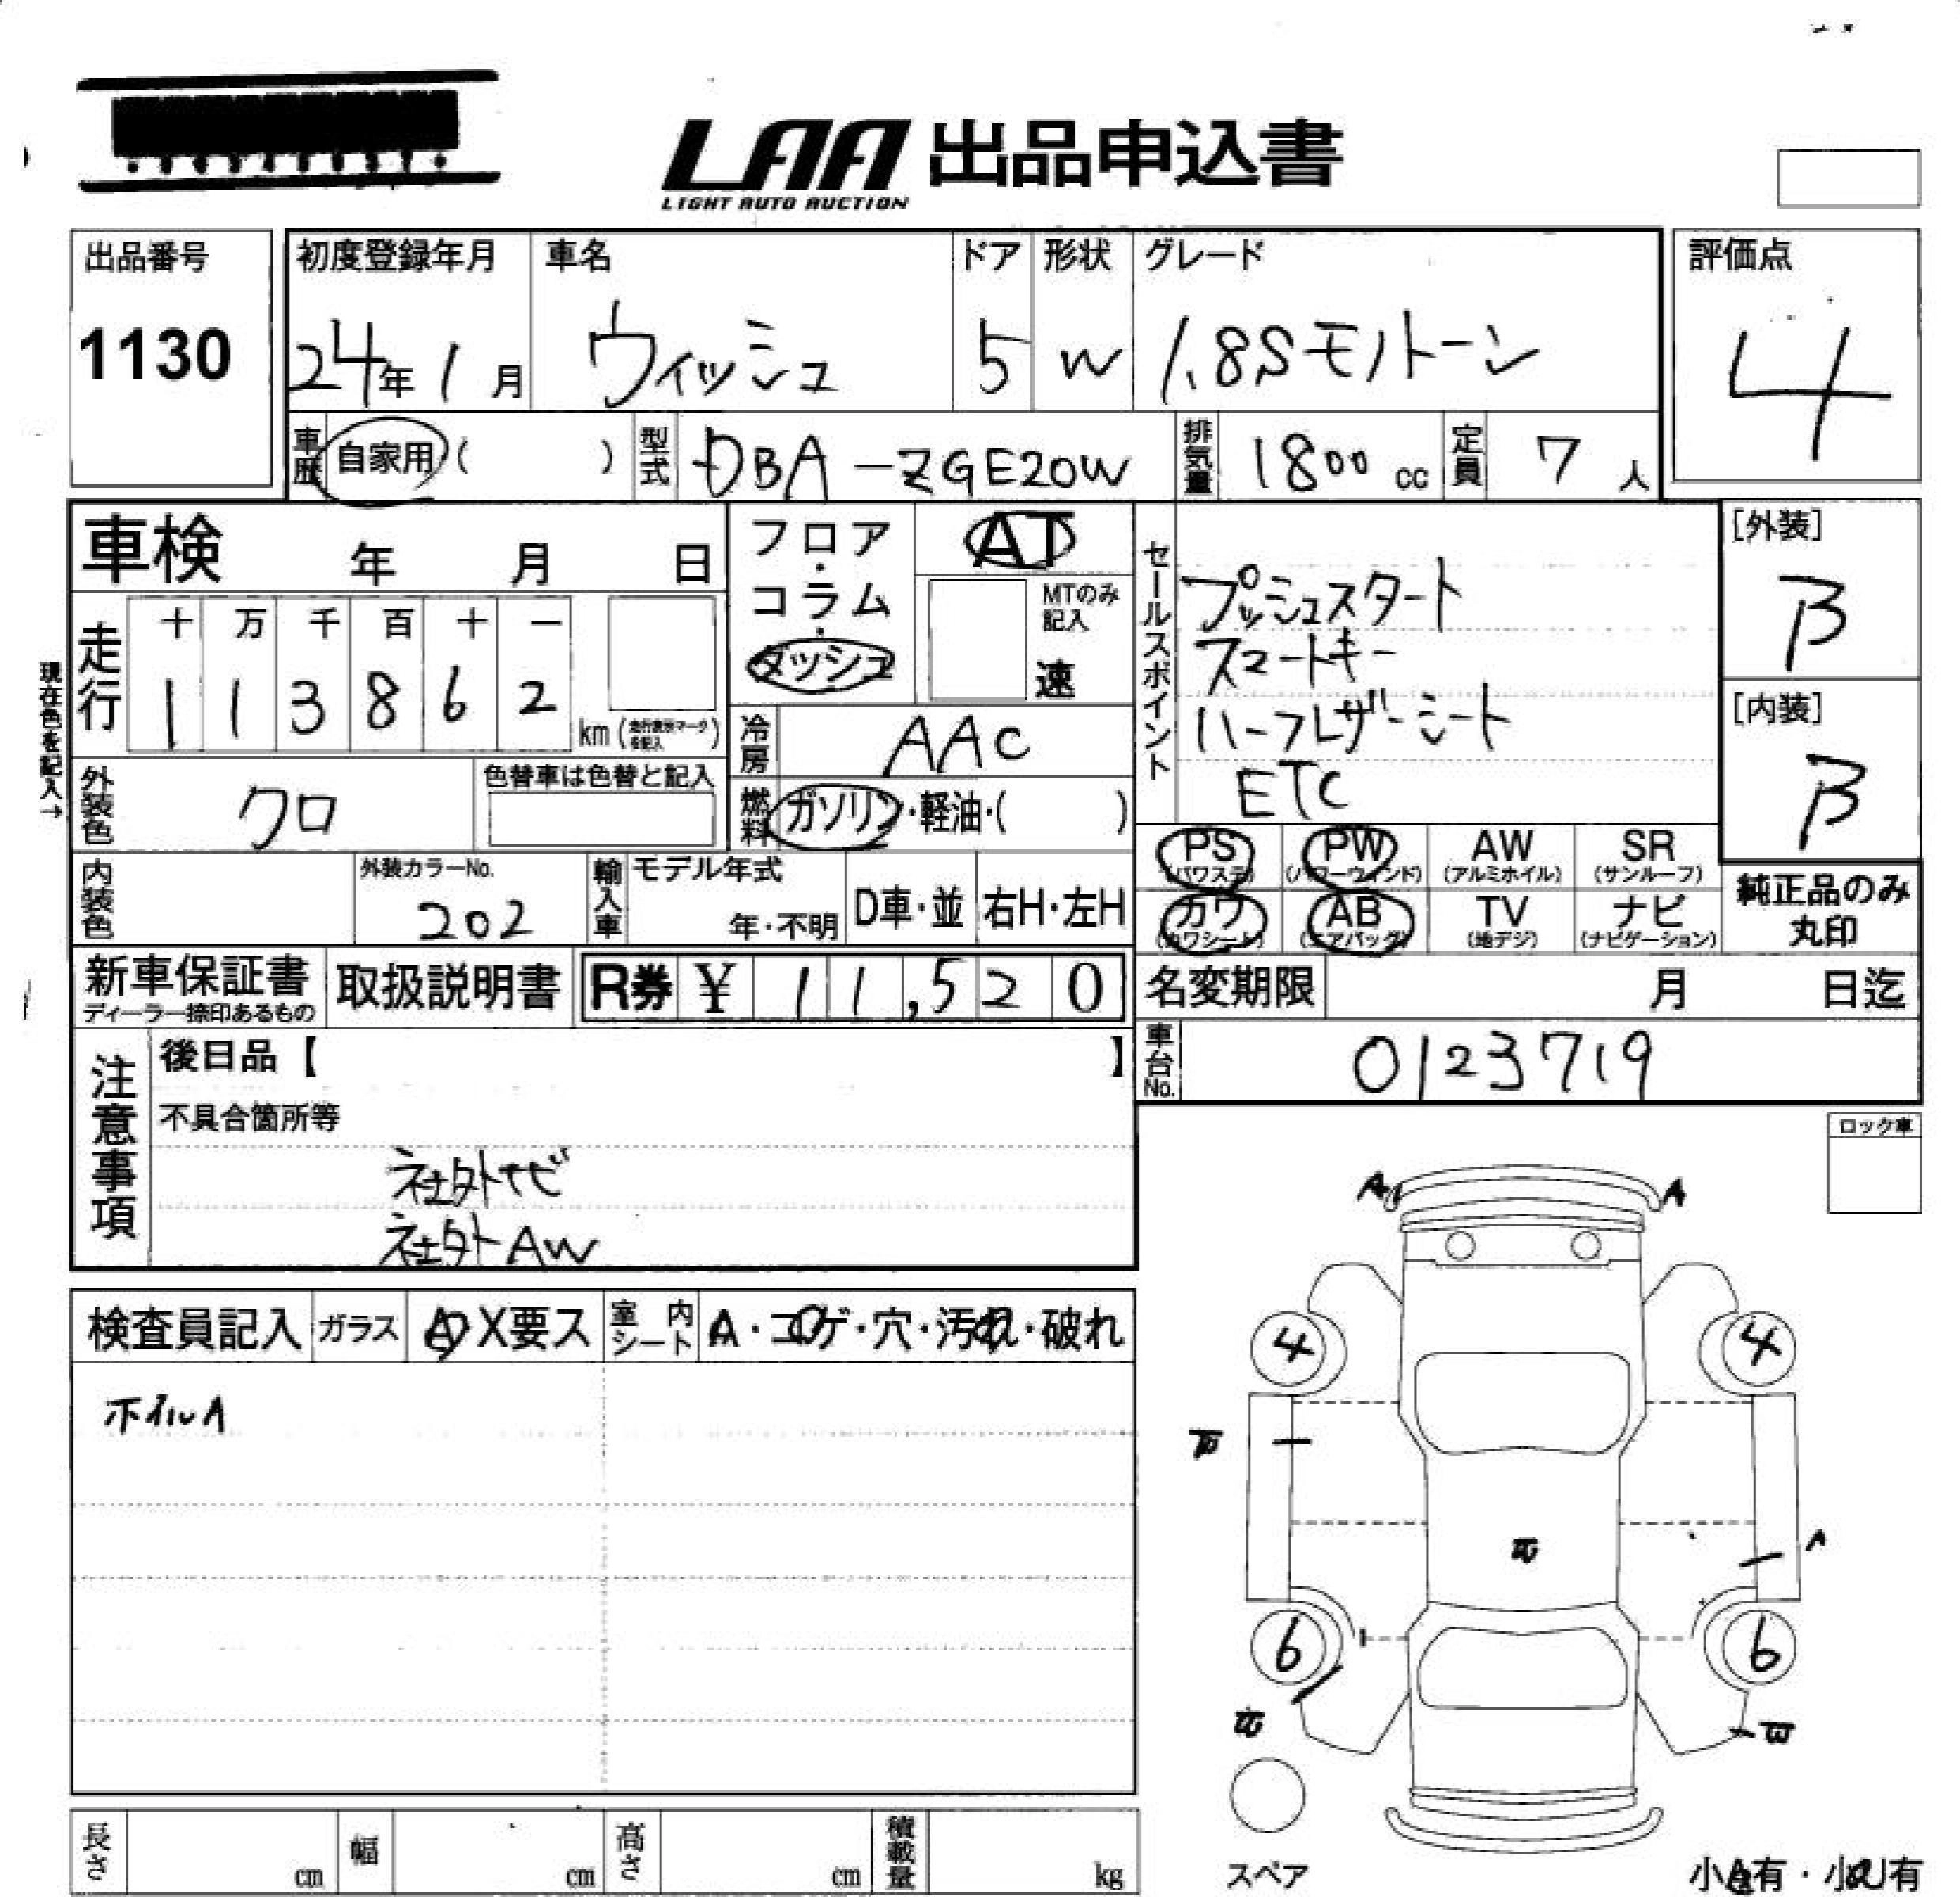 LAA 出品申込書
LIGHT AUTO AUCTION
出品番号 初度登録年月 車名 ドア 形状 グレード 評価点
1130 24年1月 ウィッシュ 5 W 1.8Sモノトーン 4
車歴 自家用( ) 型式 DBA-ZGE20W 排気量 1800 cc 定員 7 人
車検 年 月 日
フロア・コラム・ダッシュ
AT
MTのみ記入
速
セールスポイント
プッシュスタート
スマートキー
ハーフレザーシート
ETC
[外装]
B
[内装]
B
現在色を記入→
走行 十 万 千 百 十 一
1 1 3 8 6 2 km (走行表示マークを記入)
冷房 AAC
外装色 クロ 色替車は色替と記入
燃料 ガソリン・軽油・( )
PS AW SR PW
(パワステ) (パワーウインド) (アルミホイル) (サンルーフ)
カワ AB TV ナビ
(カワシート) (エアバッグ) (地デジ) (ナビゲーション)
純正品のみ
丸印
内装色 外装カラーNo. 202 輸入車 モデル年式 年・不明 D車・並 右H・左H
新車保証書 取扱説明書 R券 ¥ 11,520
ディーラー捺印あるもの
名変期限 月 日迄
車台No. 0123719
注意事項
後日品【 】
不具合箇所等
社外ナビ
社外AW
ロック車
検査員記入 ガラス A X要ス 室内シート A・コゲ・穴・汚れ・破れ
ホイルA
A A
4 4
A
6 6
スペア
長さ cm 幅 cm 高さ cm 積載量 kg
小A有・小U有